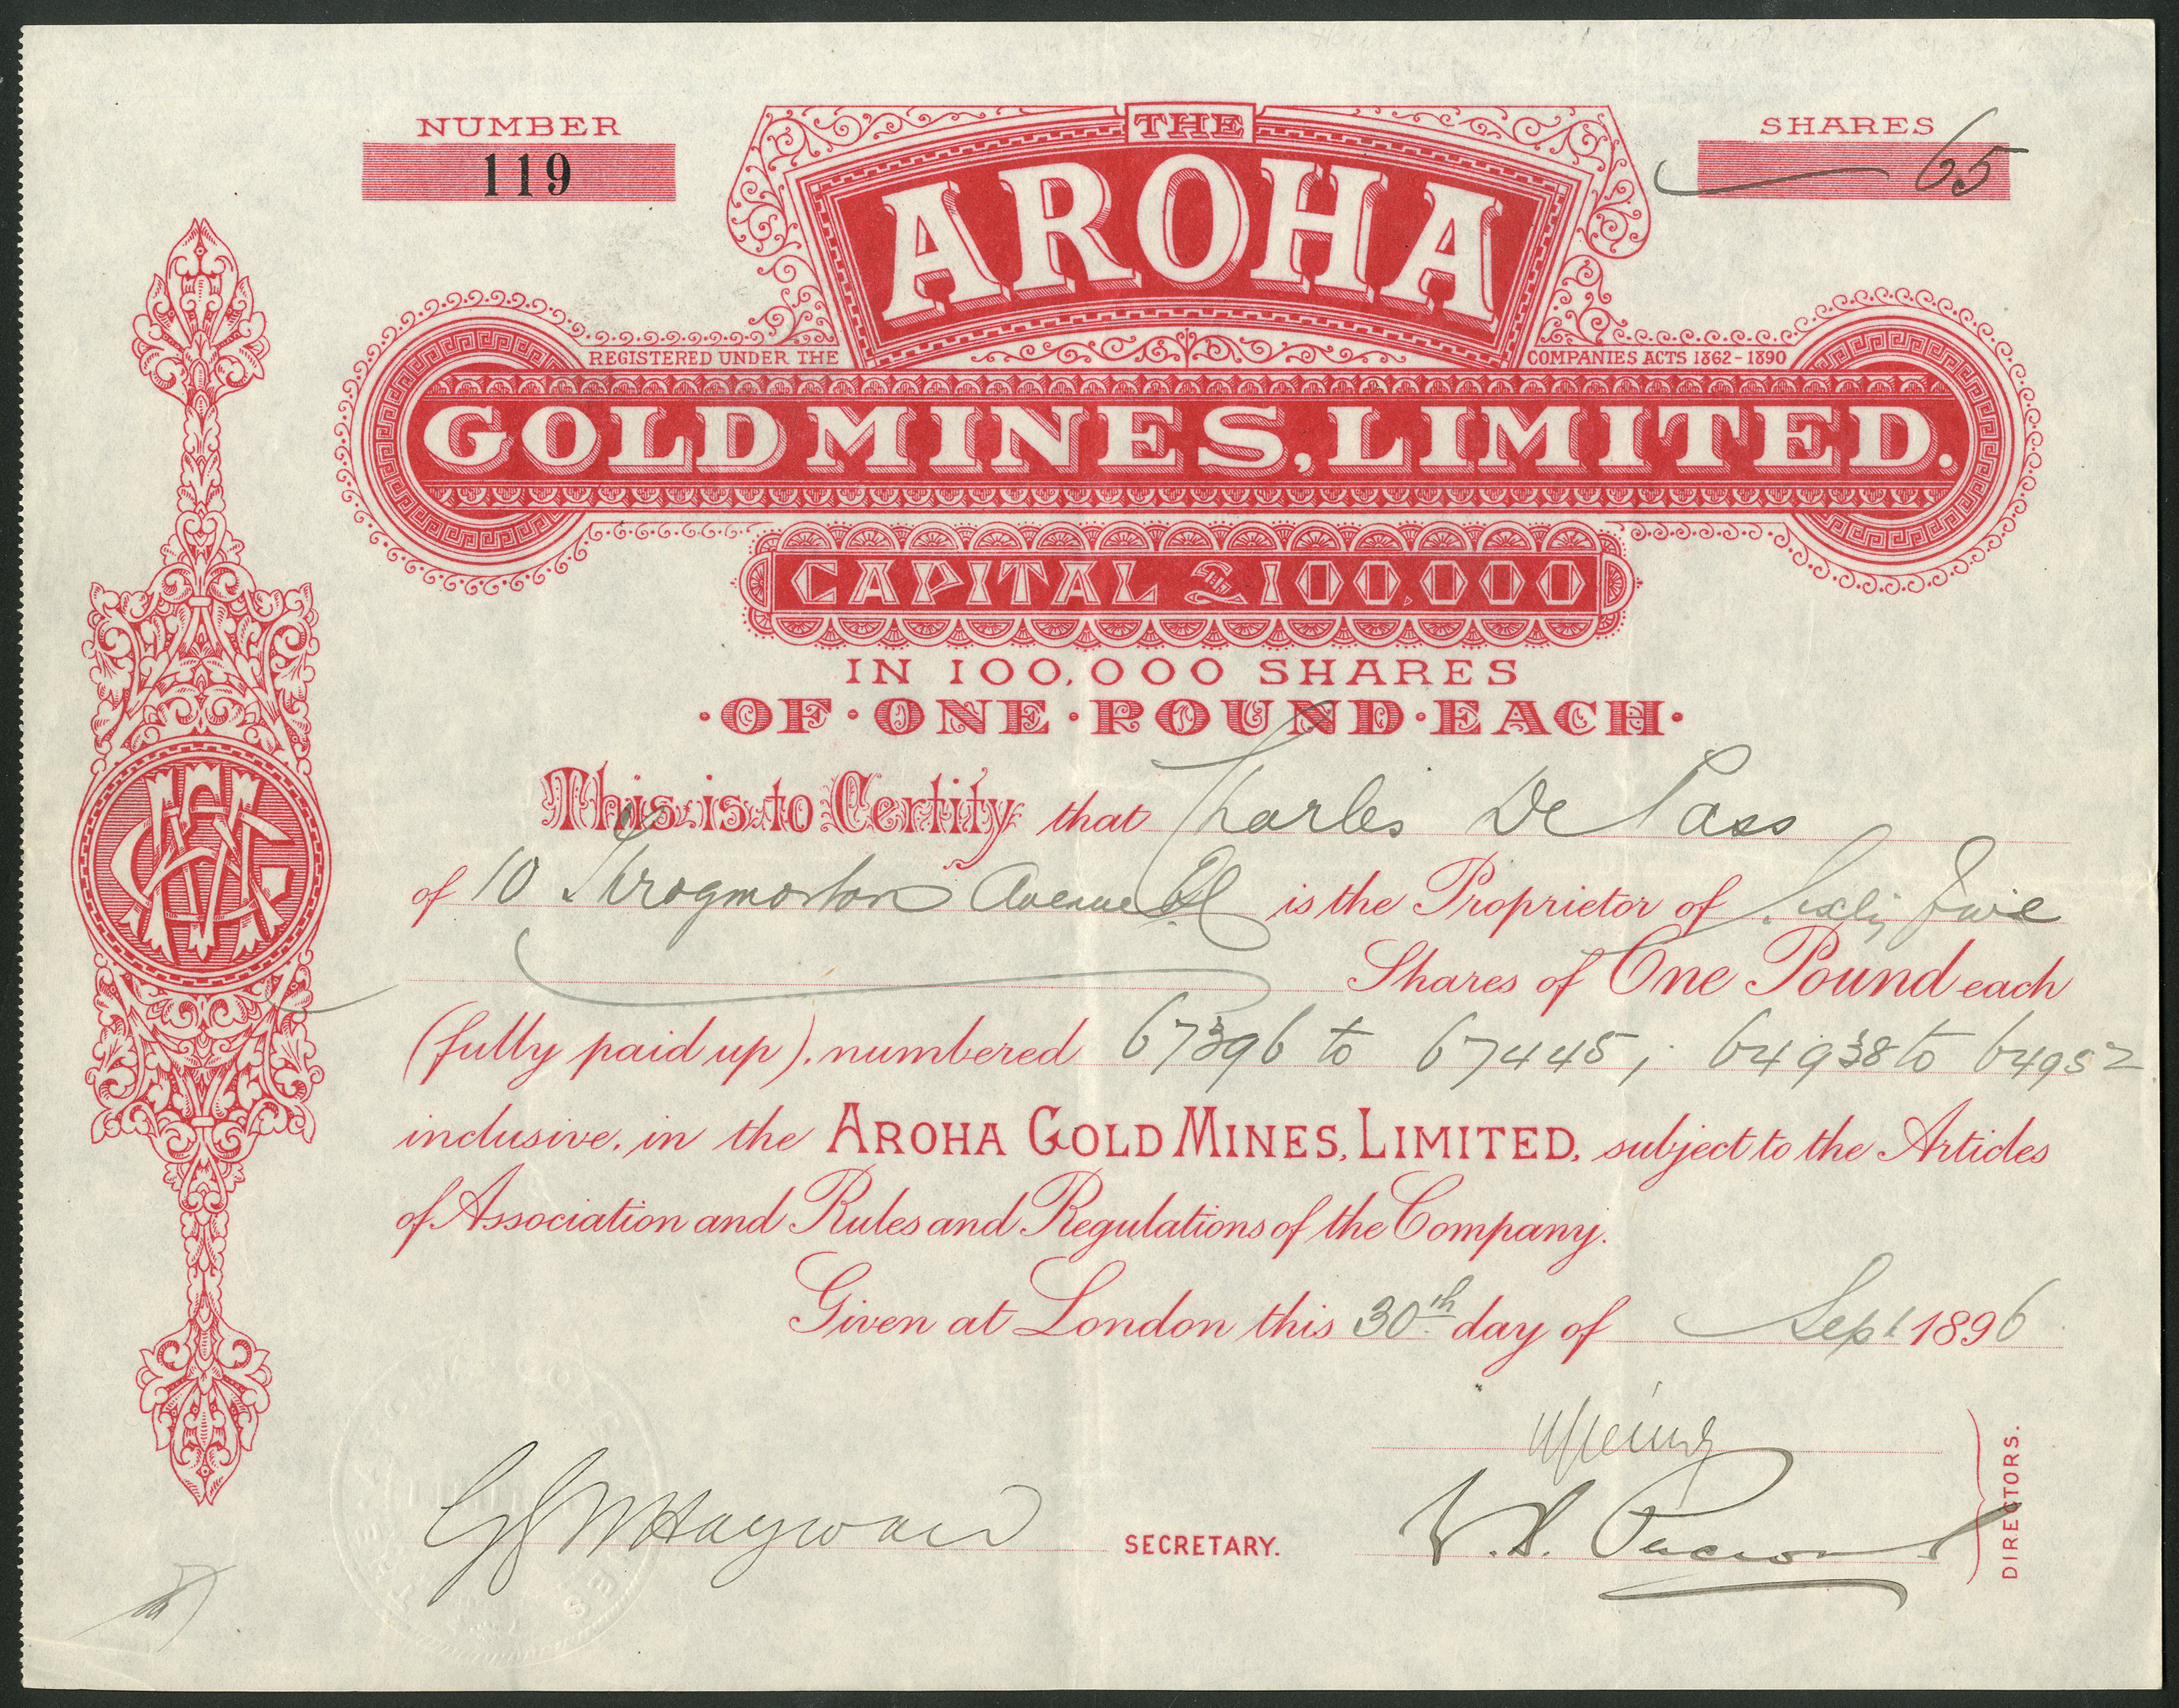 NUMBER
119
SHARES
65
THE
AROHA
REGISTERED UNDER THE COMPANIES ACTS 1862-1890
GOLD MINES, LIMITED.
CAPITAL £100,000
IN 100,000 SHARES
·OF·ONE·POUND·EACH·
This is to Certify that Charles De Pass
of 10 Throgmorton Avenue EC is the Proprietor of Sixty five
Shares of One Pound each
(fully paid up), numbered 67396 to 67445; 64938 to 64952
inclusive, in the AROHA GOLD MINES, LIMITED, subject to the Articles
of Association and Rules and Regulations of the Company.
Given at London this 30th day of Sept 1896
Hayward SECRETARY.
DIRECTORS.